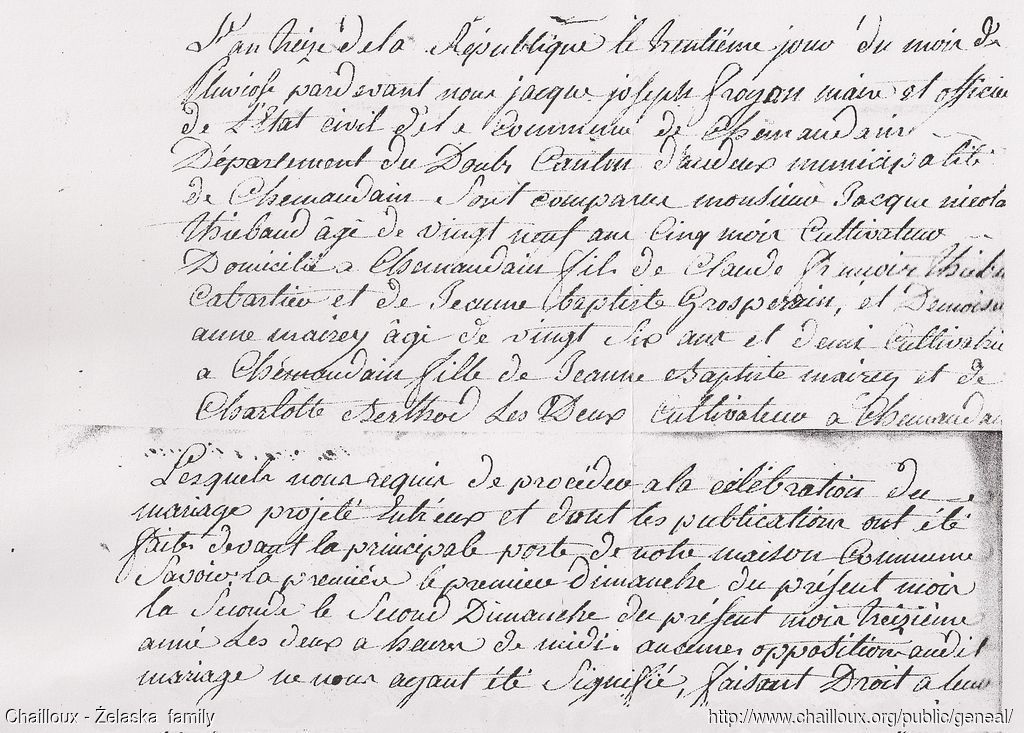 L'an treize de la République le trentième jour du mois de
Pluviose pardevant nous jacque joseph froyan maire et officie
de L'Etat civil de commune de Chemaudain
Département du Doubs Canton d'audeux municipalité
de Chemaudain Sont comparu monsieur Jacque nicola
Thiebaud âgé de vingt neuf ans Cinq mois Cultivateur
Domicilié a Chemaudain fils de Claude
Cabartier et de Jeanne baptiste Grosperrin, et Demoise
anne mairey âgé de vingt Six ans et demi Cultivatri
a Chémaudain fille de Jeanne Baptiste mairey et de
Charlotte Berthod Les Deux Cultivateur a Chemaudai
Lesquels nous requis de procéder a la célébration du
mariage projeté Entreux et dont les publications ont été
faites devant la principale porte de notre maison Commune
Savoir la première le premiere dimanche du présent mois
la Seconde le Second Dimanche du présent mois treizième
anné Les deux a heures de midi. aucunes opposition audit
mariage ne nous ayant été Signifié, faisant Droit a leur
Chailloux - Żelaska family
http://www.chailloux.org/public/geneal/